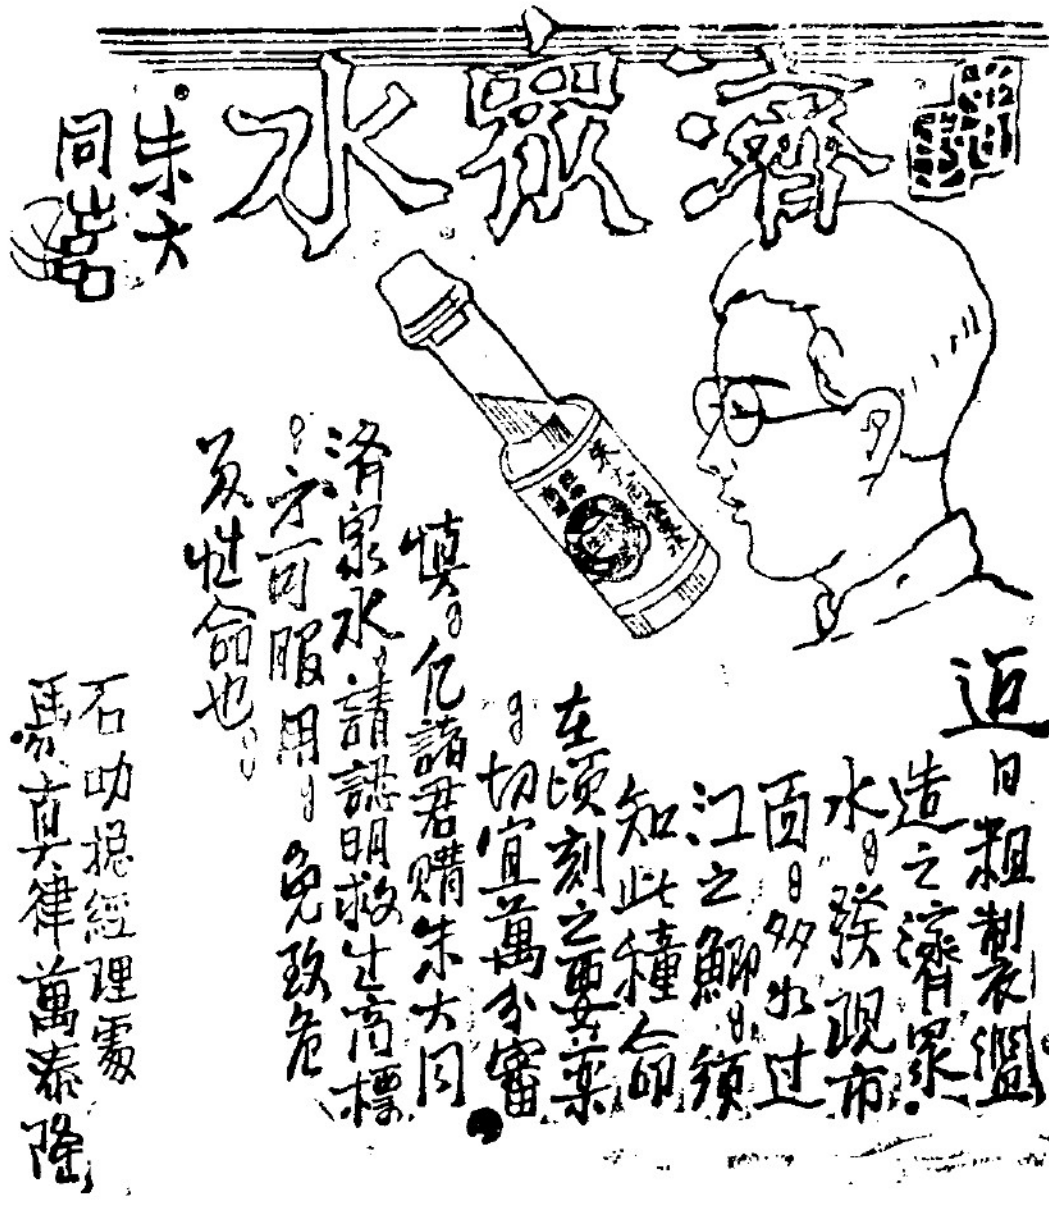 濟眾水
朱大
同
近日粗製濫
造之濟眾
水。發現市
面。多如过
江之鯽。須
知此種命
在頃刻之要藥
。切宜萬分審
慎。凡諸君購朱大同
済眾水。請認明救生商標
。方可服用。免致危
及性命也。
石叻總經理處
馬真律萬泰隆